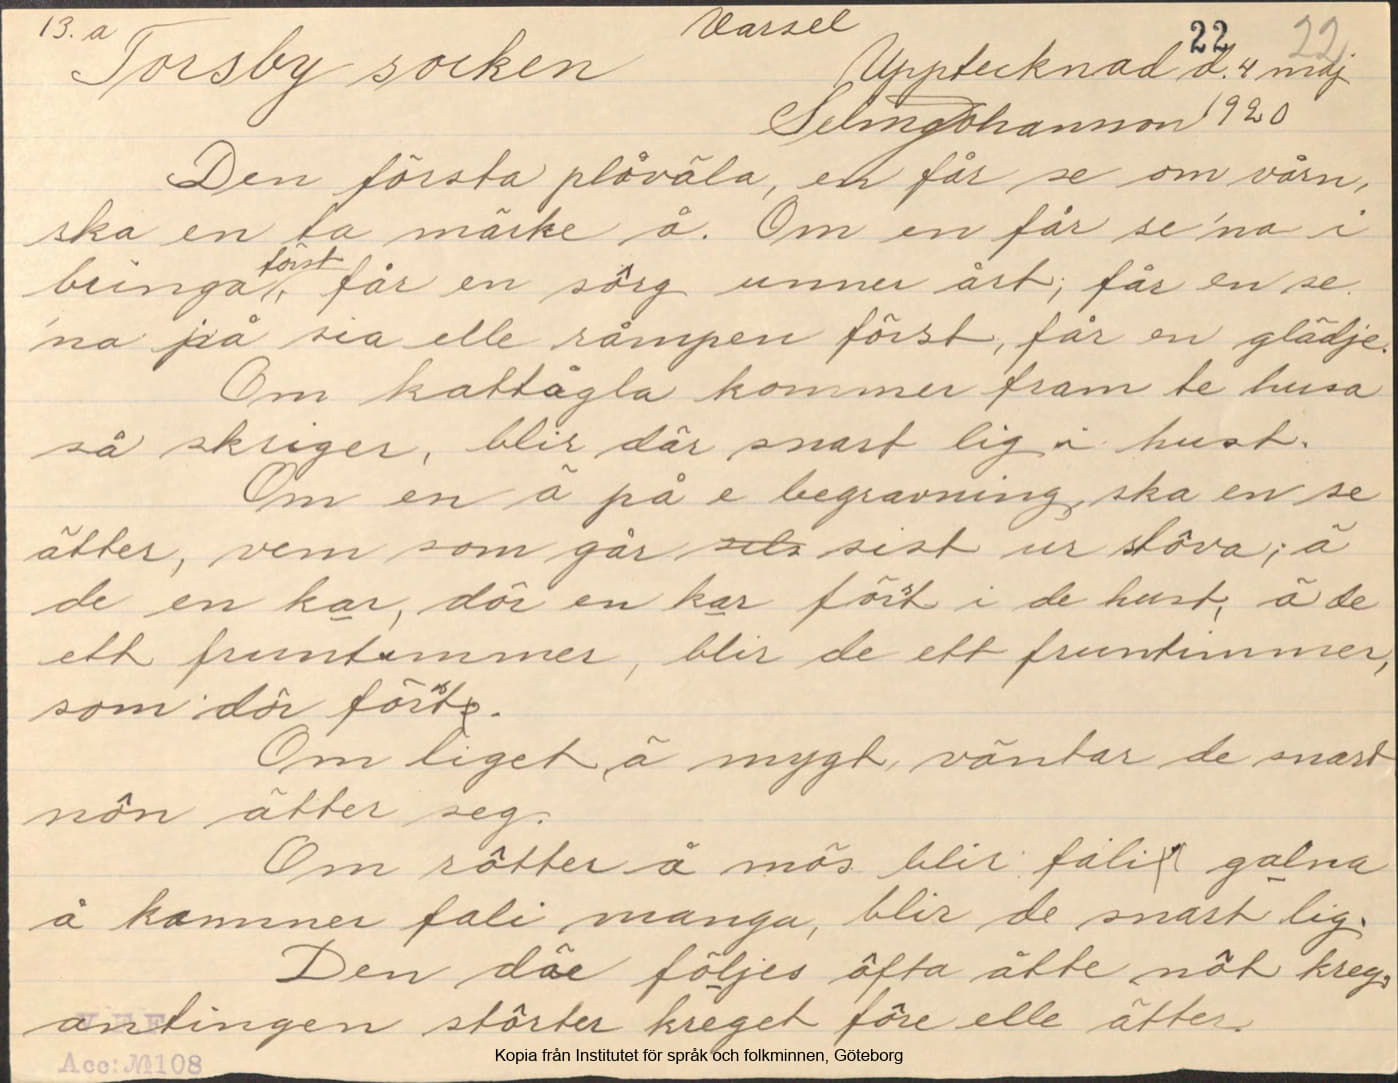 13. a Varsel 22 22
Torsby socken Upptecknad d. 4 maj
Selma Johansson 1920
Den första plåväla, en får se om vårn,
ska en ta märke å. Om en får se 'na i
bringa först, får en sôrg unner året; får en se
'na på sia elle råmpen först, får en glädje.
Om kattågla kommer fram te husa
så skriger, blir där snart lig i huset.
Om en ä på e begravning, ska en se
ätter, vem som går sist ur stôva; ä
de en kar, dör en kar först i de huset, ä de
ett fruntimmer, blir de ett fruntimmer,
som dör först.
Om liget ä mygt, väntar de snart
nôn ätter seg.
Om rôtter å mös blir fali galna
å kommer fali manga, blir de snart lig.
Den döe följes ôfta åtte nôt kreg,
antingen stôrter kreget före elle ätter.
V F F
Acc: № 108
Kopia från Institutet för språk och folkminnen, Göteborg